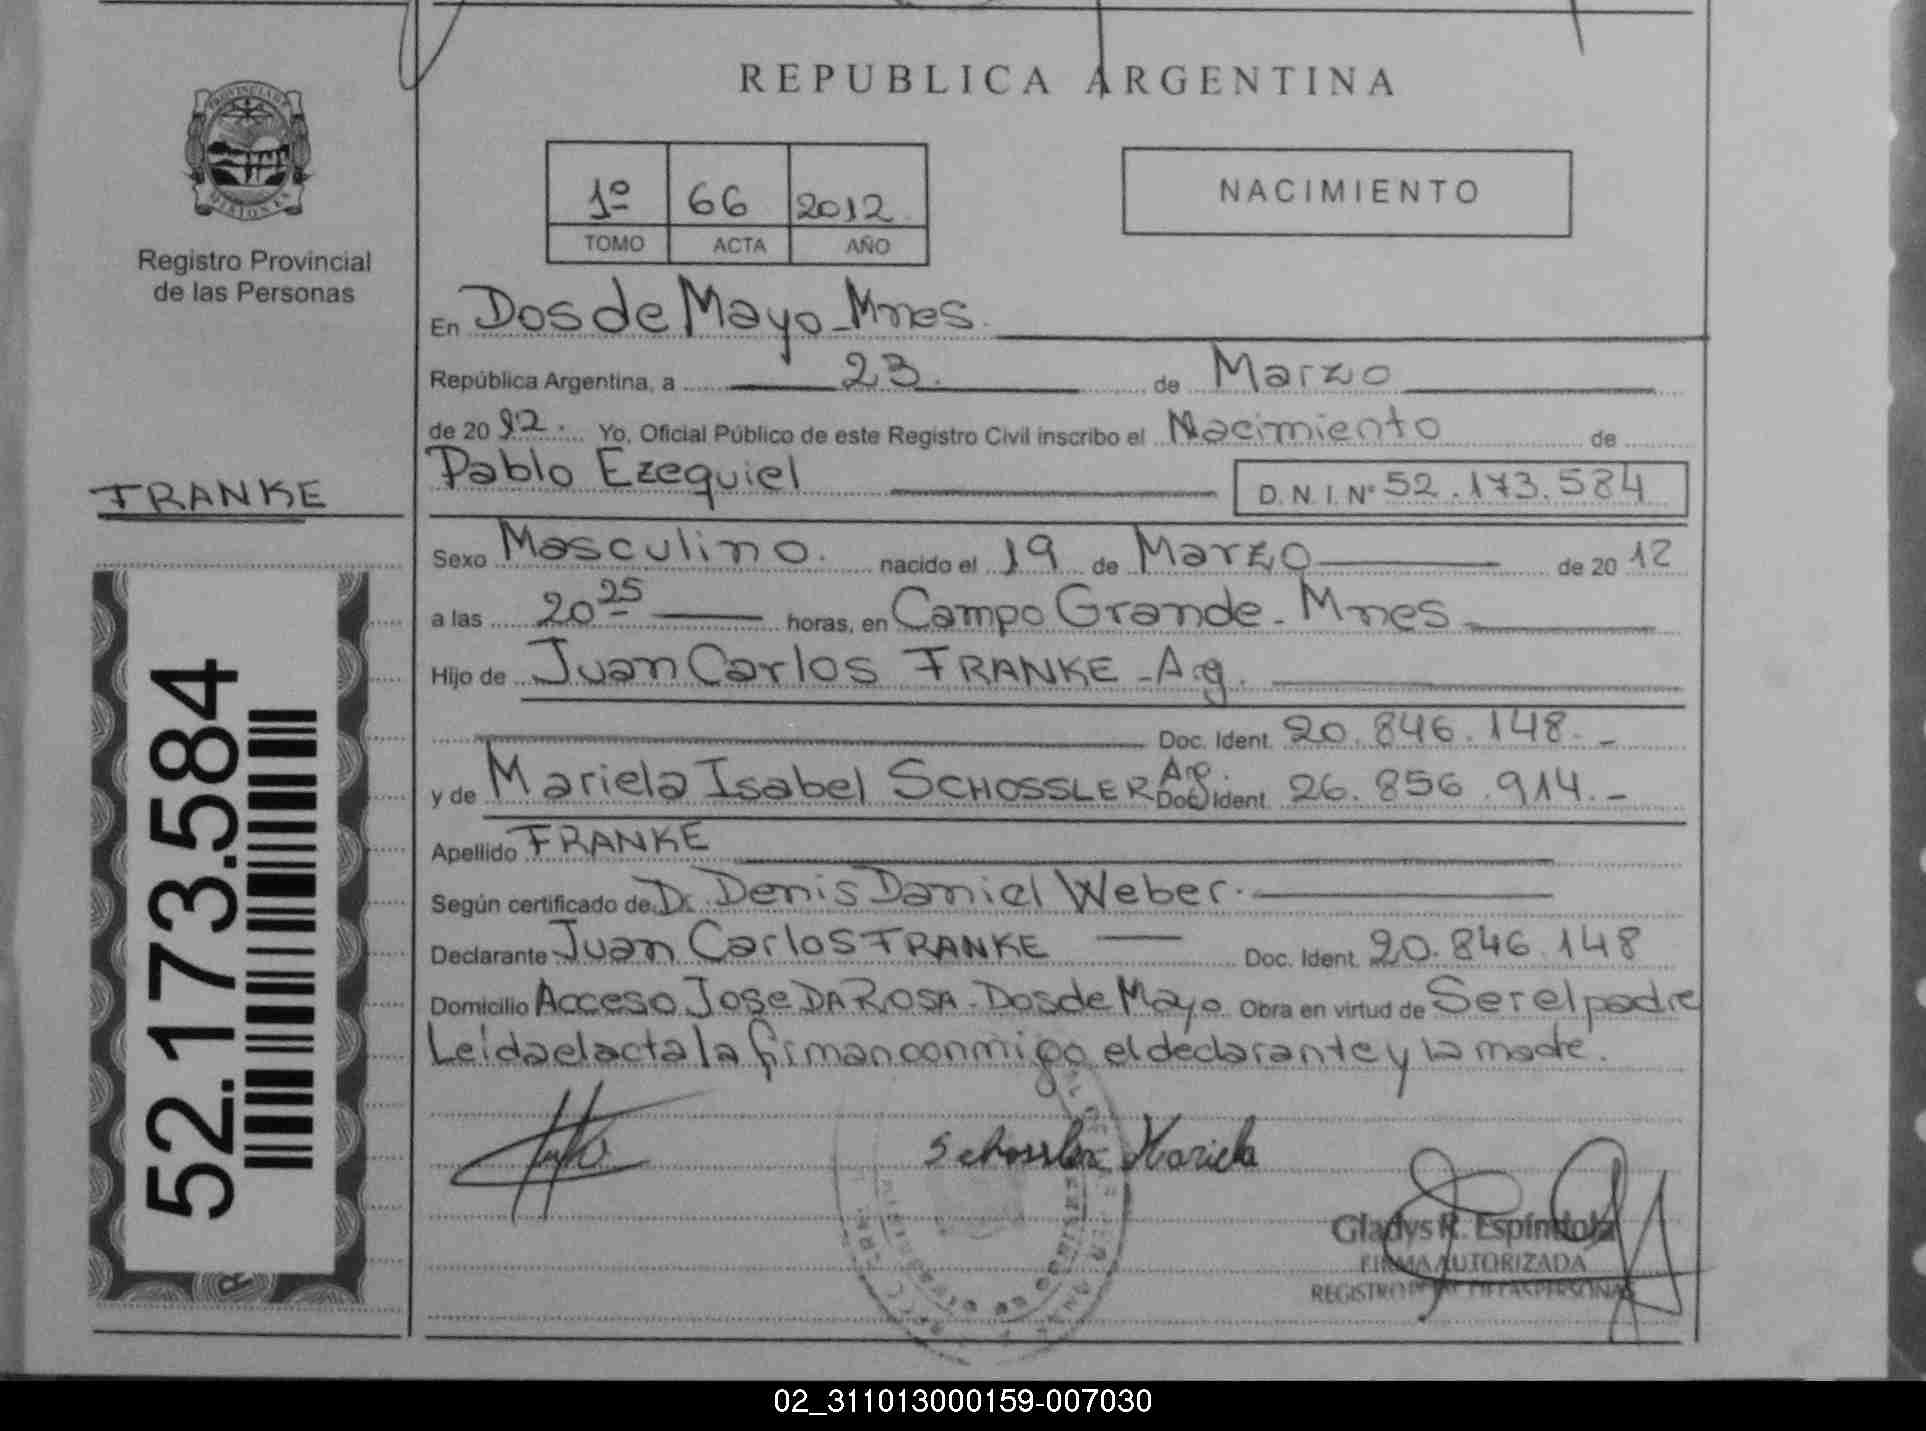 REPUBLICA ARGENTINA
PROVINCIA DE
MISIONES
Registro Provincial
de las Personas
1º 66 2012
TOMO ACTA AÑO
NACIMIENTO
En Dos de Mayo - Mnes.
República Argentina, a 23. de Marzo
de 20 12. Yo, Oficial Público de este Registro Civil inscribo el Nacimiento de
Pablo Ezequiel D. N. I. Nº 52.173.584
FRANKE
Sexo Masculino. nacido el 19 de Marzo de 20 12
a las 20 25 horas, en Campo Grande - Mnes
Hijo de Juan Carlos FRANKE - Arg.
Doc. Ident. 20.846.148.-
y de Mariela Isabel SCHOSSLER Arg. Doc. Ident. 26.856.914.-
Apellido FRANKE
Según certificado de Dr. Denis Daniel Weber.
Declarante Juan Carlos FRANKE Doc. Ident. 20.846.148
Domicilio Acceso Jose DA ROSA - Dos de Mayo Obra en virtud de Ser el padre
Leida el acta la firman conmigo el declarante y la madre.
52.173.584
Schossler Mariela
Gladys R. Espíndola
FIRMA AUTORIZADA
REGISTRO DE LAS PERSONAS
02_311013000159-007030